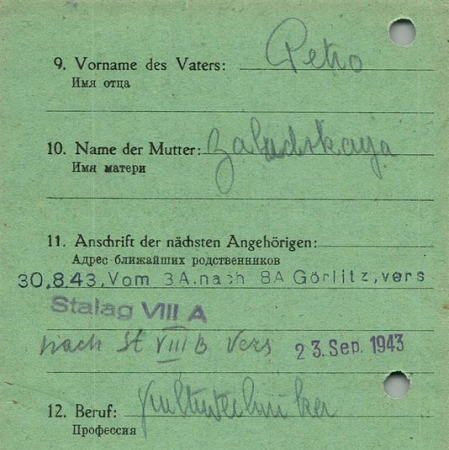 9. Vorname des Vaters: Petro
Имя отца
10. Name der Mutter: Zaludskaya
Имя матери
11. Anschrift der nächsten Angehörigen:
Адрес ближайших родственников
30.8.43, Vom 3A. nach 8A Görlitz, vers
Stalag VIII A
nach St VIII B Vers 23. Sep. 1943
12. Beruf: Kulturtechniker
Профессия